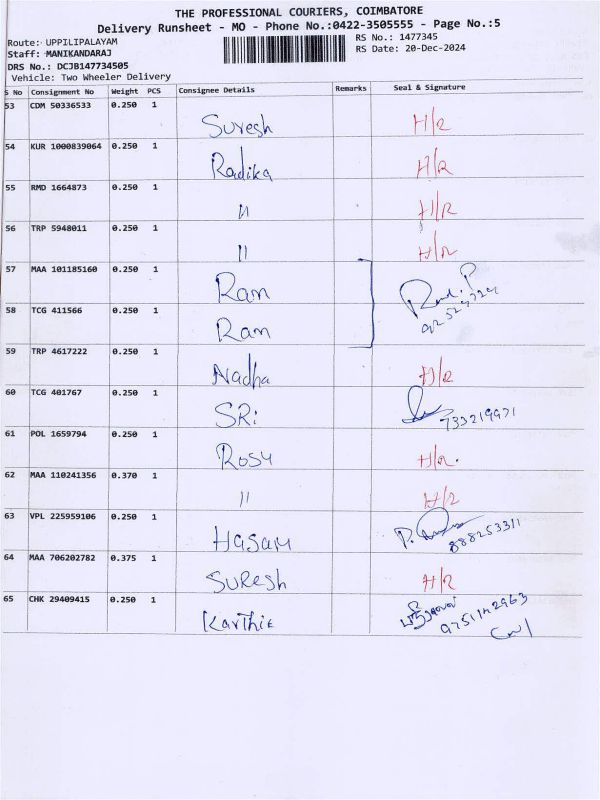 THE PROFESSIONAL COURIERS, COIMBATORE
Delivery Runsheet - MO - Phone No.:0422-3505555 - Page No.:5
Route: UPPILIPALAYAM
RS No.: 1477345
Staff: MANIKANDARAJ
RS Date: 20-Dec-2024
DRS No.: DCJB147734505
Vehicle: Two Wheeler Delivery
S No Consignment No Weight PCS Consignee Details Remarks Seal & Signature
53 CDM 50336533 0.250 1
Suresh H/R
54 KUR 1000839064 0.250 1
Radika H/R
55 RMD 1664873 0.250 1
〃 H/R
56 TRP 5948011 0.250 1
〃 H/R
57 MAA 101185160 0.250 1
Ram
58 TCG 411566 0.250 1
Ram
59 TRP 4617222 0.250 1
Nadha H/R
60 TCG 401767 0.250 1
SRi 733219971
61 POL 1659794 0.250 1
Rosy H/R.
62 MAA 110241356 0.370 1
〃 H/R
63 VPL 225959106 0.250 1
Hasam 888253311
64 MAA 706202782 0.375 1
SUResh H/R
65 CHK 29409415 0.250 1
Karthik 9751142963